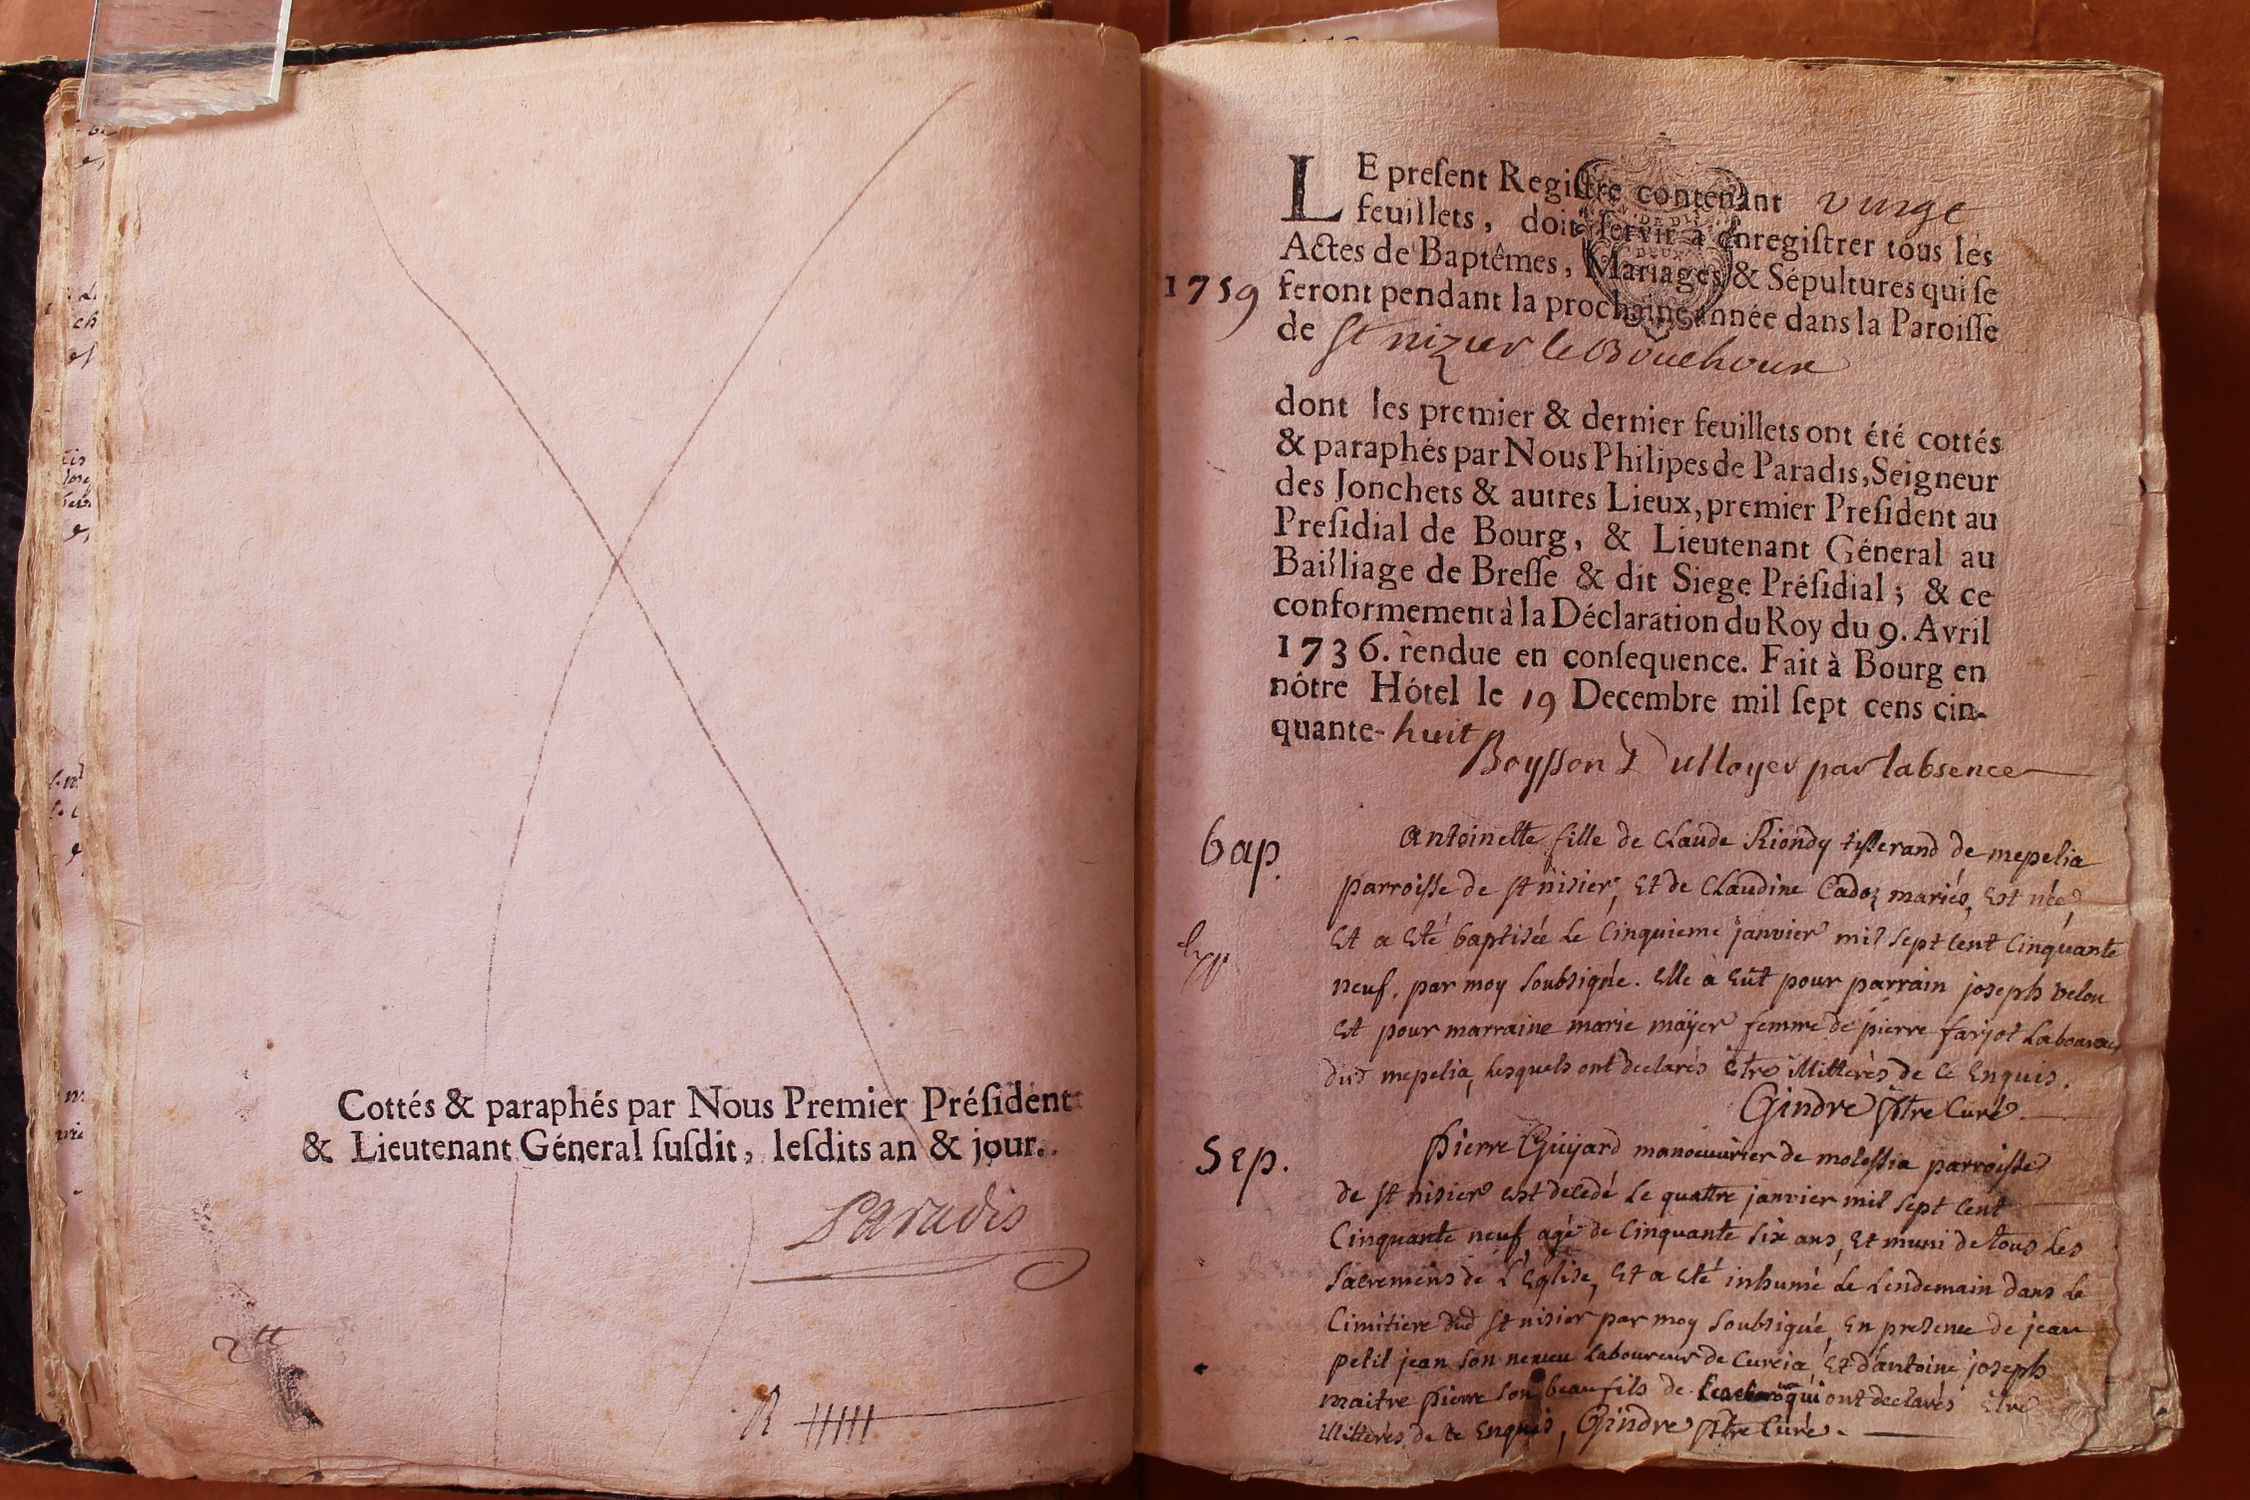 Cottés & paraphés par Nous Premier Préſident
& Lieutenant Géneral ſuſdit, leſdits an & jour.
Paradis
1759
LE preſent Regiſtre contenant vingt
feuillets, doit ſervir à enregiſtrer tous les
Actes de Baptêmes, Mariages & Sépultures qui ſe
feront pendant la prochaine année dans la Paroiſſe
de St nizier le Bouchoux
dont les premier & dernier feuillets ont été cottés
& paraphés par Nous Philipes de Paradis, Seigneur
des Jonchets & autres Lieux, premier Preſident au
Preſidial de Bourg, & Lieutenant Géneral au
Bailliage de Breſſe & dit Siege Préſidial ; & ce
conformement à la Déclaration du Roy du 9. Avril
1736. rendue en conſequence. Fait à Bourg en
nôtre Hótel le 19 Decembre mil ſept cens cin-
quante-huit
Boysson D par labsence
bap.
Antoinette fille de Claude Riondy tisserand de mepelia
parroisse de st nisier, et de Claudine Cadoz mariés, est née
et a eté baptisée le Cinquieme janvier mil sept cent Cinquante
neuf, par moy soubsigné. elle a eut pour parrain joseph velon
et pour marraine marie mäyer femme de pierre farjot Laboureur
dud mepelia, lesquels ont declarés être illitterés de ce Enquis.
Gindre Ptre Curé
Sep.
Pierre Guyard manoeuvrier de molessia parroisse
de st nisier est decedé le quattre janvier mil sept cent
Cinquante neuf agé de Cinquante six ans, et muni de tous les
sacremens de L'Eglise, et a eté inhumé le Lendemain dans le
Cimitiere dud st nisier par moy soubsigné, en presence de jean
petit jean son neveu Laboureur de Curcia et d'antoine joseph
maitre pierre son beau fils de qui ont declarés être
illitterés de ce Enquis, Gindre Ptre Curé.